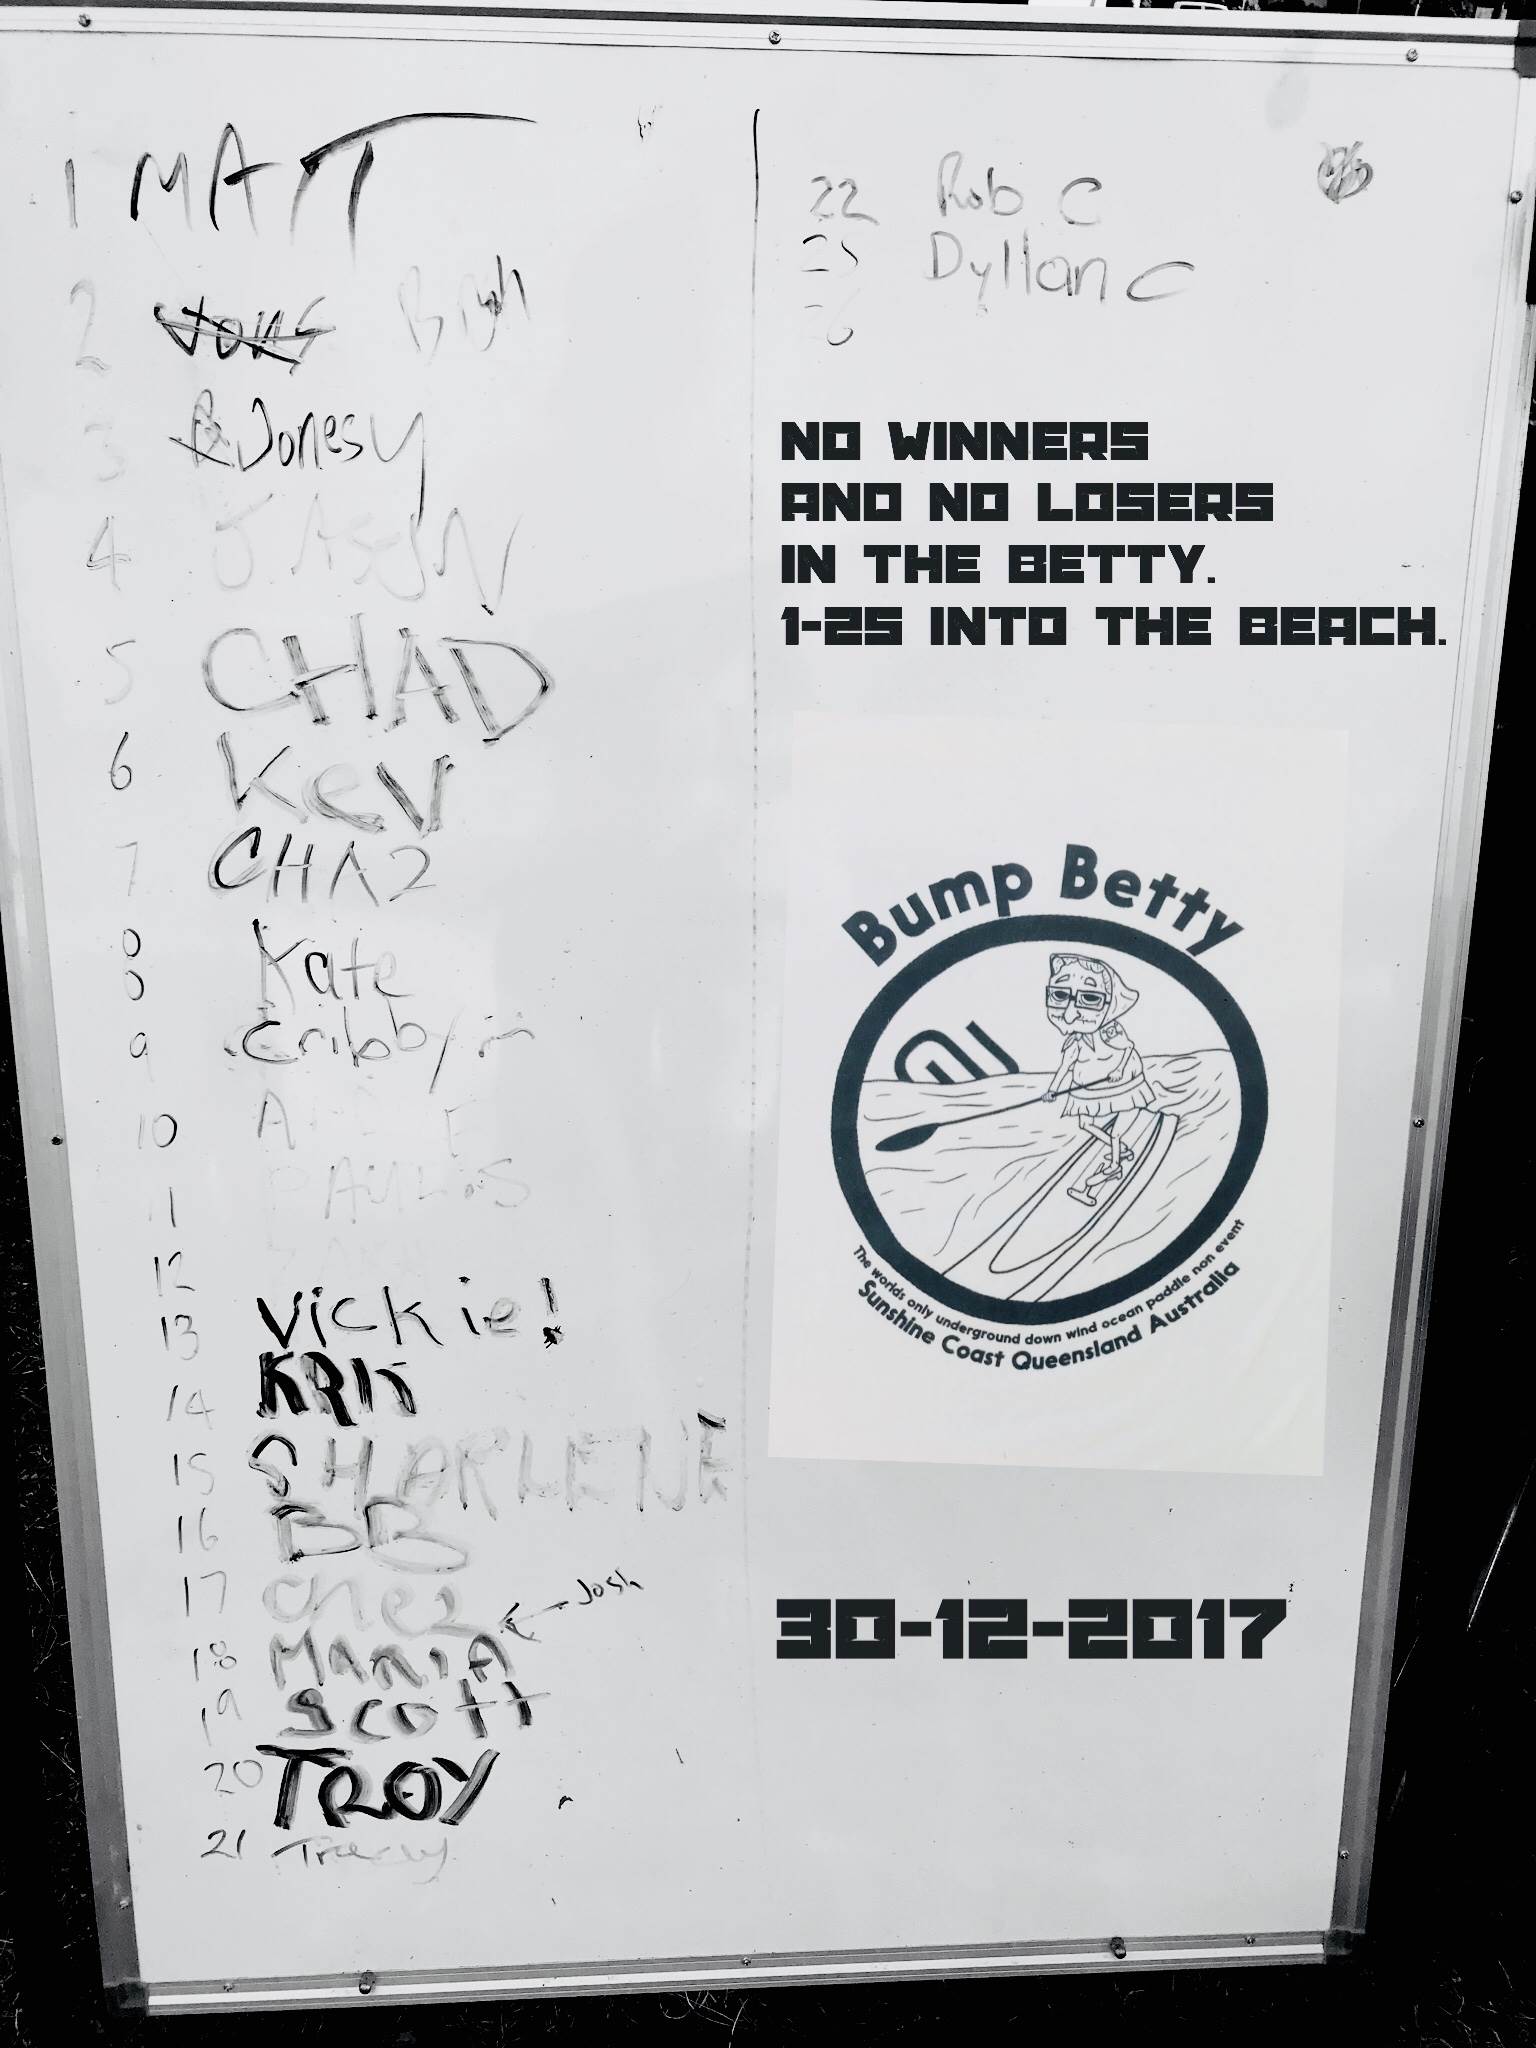 1 MATT
2 Jons
3 Jonesy
4 JASON
5 CHAD
6 Kev
7 CHAZ
8 Kate
9 Cribby
10
11
12
13 Vickie!
14 KRIS
15 SHARLENE
16 BB
17 Chez
Josh
18 MANIA
19 Scott
20 TROY
21 Tracey
22 Rob C
Dyllan C
NO WINNERS
AND NO LOSERS
IN THE BETTY.
1-25 INTO THE BEACH.
Bump Betty
The worlds only underground down wind ocean paddle non event
Sunshine Coast Queensland Australia
30-12-2017